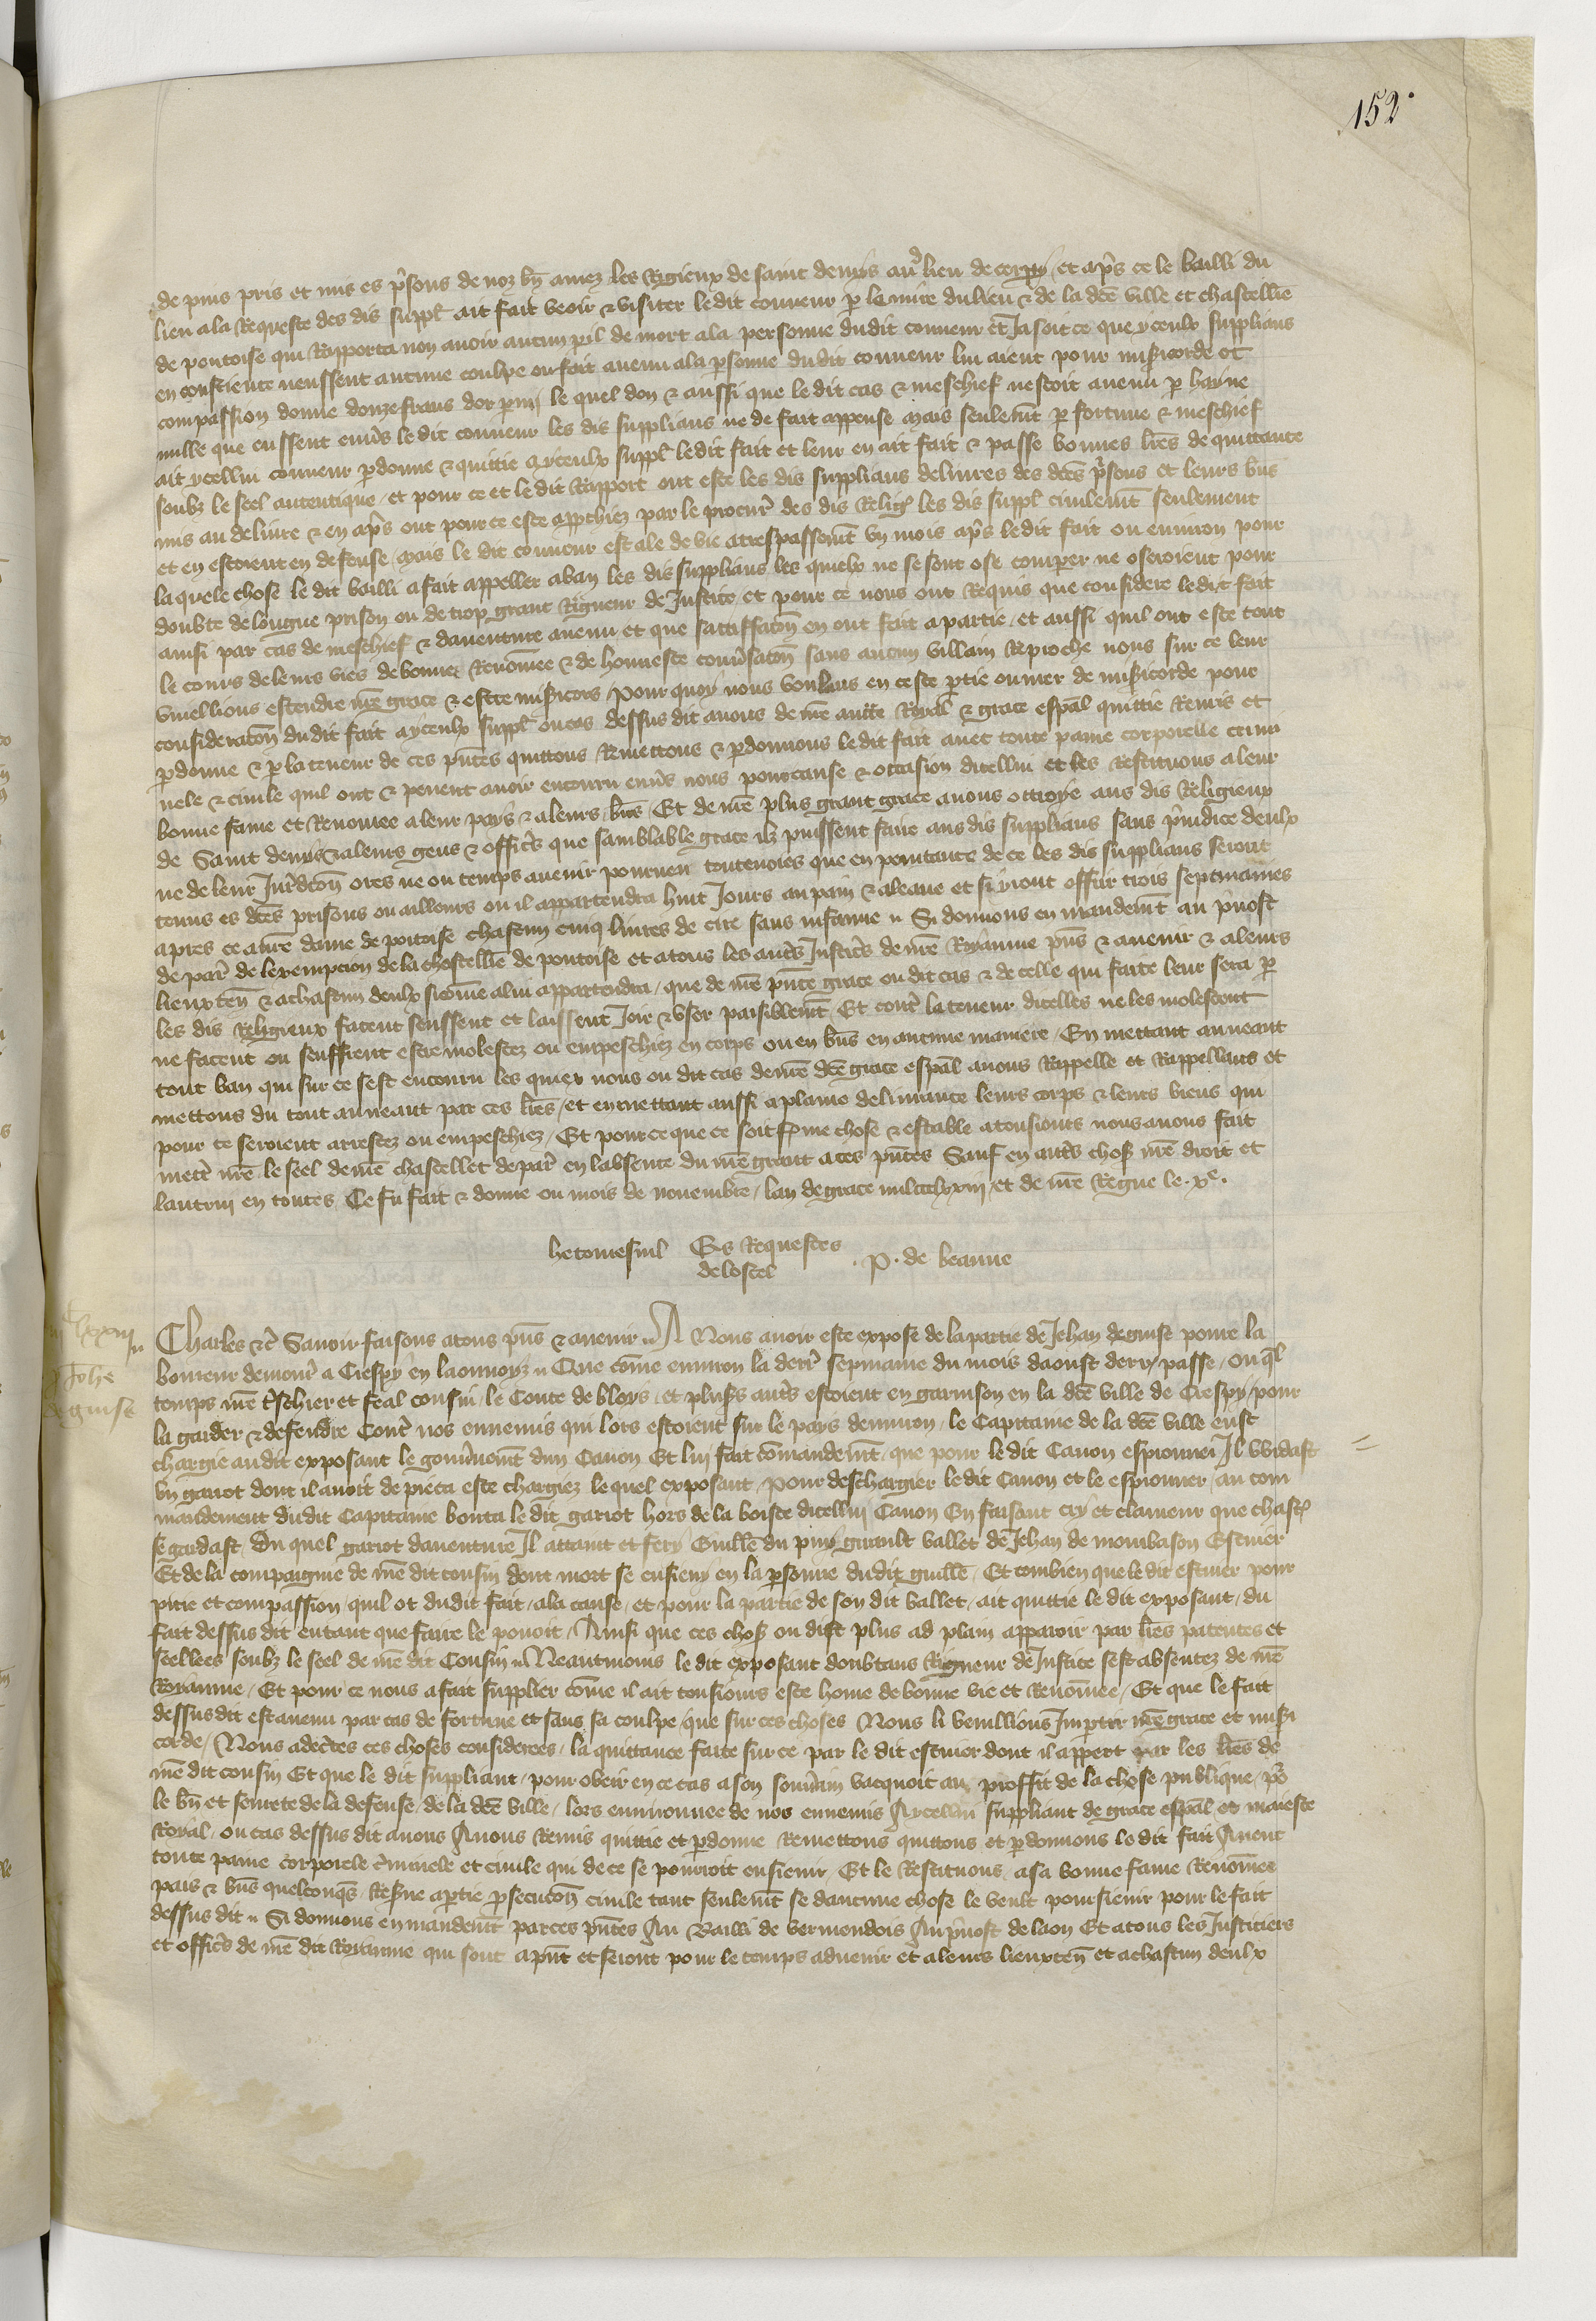 152
de puis pris et mis es p'sons de noz bn̄ amez les Rgieux de saint denys au lieu de cergy / et ap's ce le bailli du
lieu a la Requeste des dis suppl' ait fait veoir & visiter le dit couueur p le mire du lieu & de la dcē ville et chastelliē
de pontoise qui Rapporta non auoir aucun pil de mort a la personne du dit couueur Et Ja soit ce que yceulx supplians
en conscience neussent aucune coulpe ou fait auenu a la psonne du dit couueur lui aient pour misicorde et
compassion donne douze frans dor pmi le quel don & aussi que le dit cas & meschief nestoit auenu p hayne
nulle que eussent enu's le dit couueur les dis supplians ne de fait appense mais seulemt p fortune & meschief
ait ycellui couueur pdonne & quittie a yceulx suppl' le dit fait et leur en ait fait & passe bonnes lr̄es de quittance
soubz le seel autentique / et pour ce et le dit Rapport ont este les dis supplians deliures des dcēs p'sons et leurs bn̄s
mis au deliure & en ap's ont pour ce este approchiez par le procur' des dis Relig' les dis suppl' ciuilemt seulement
et en estoient en defense / mais le dit couueur est ale de vie a trespassemt vn mois ap's le dit fait ou enuiron pour
la quele chose le dit bailli a fait appeller a ban les dis supplians les quielx ne se sont ose comper ne oseroient pour
doubte de longue prison ou de trop grant Rigueur de Justice et pour ce nous ont Requis que considere le dit fait
ainsi par cas de meschief & dauenture auenu et que sattiffacōn en ont fait a partie / et aussi quil ont este tout
le cours de leurs vies de bonne Renōmee & de honneste conu'sacōn sans aucun villain Reproche nous sur ce leur
vueillions estendre nr̄e grace & estre misicors / Pour quoy nous voulans en ceste ptie ouurer de misicorde pour
consideracōn du dit fait a yceulx suppl' ou cas dessus dit auons de nr̄e aucte Royal & grace espāl quittie Remis et
pdonne & p la teneur de ces pn̄tes quittons Remettons & pdonnons le dit fait auec toute paine corporelle crimi
nele & ciuile quil ont & peuent auoir encouru enu's nous pour cause & occasion dicellui et les Restituons a leur
bonne fame et Renomee a leur pays & a leurs bn̄s / Et de nr̄e plus grant grace auons ottroye aus dis Religieux
de Saint denys & a leurs gens & offic's que samblable grace ilz puissent faire aus dis supplians sans p'iudice deulx
ne de leur Jur̄dcōn ores ne ou temps auenir pourueu toutenoies que en penitance de ce les dis supplians seront
tenus es dcēs prisons ou ailleurs ou il appartendra huit Jours au pain & a leaue et si yront offrir trois sepmaines
apres ce a nr̄e dame de pontoise chascun cinq liures de cire sans infamie // Si donnons en mandemt au p'uost
de par' de lexempcion de la chastelliē de pontoise et a tous les aut's Justic's de nr̄e Royaume pn̄s & auenir & a leurs
lieuxten̄ & a chascun deulx si cōme a lui appartendra / que de nr̄e pn̄te grace ou dit cas & de celle qui faite leur sera p
les dis Religieux facent seuffrent et laissent Joir & vser paisiblemt Et contr' la teneur dicelles ne les molestent
ne facent ou seuffrent estre molestez ou empeschiez en corps ou en bn̄s en aucune maniere / En mettant au neant
tout ban qui sur ce sest encouru les quiex nous ou dit cas de nr̄e dcē grace espāl auons Rappelle et Rappellons et
mettons du tout au neant par ces lr̄es / et en mettant aussi a plaine deliurance leurs corps & leurs biens qui
pour ce seroient arrestez ou empeschiez / Et pour ce que ce soit ferme chose & estable a tousiours nous auons fait
metr' nr̄e le seel de nr̄e chastellet de par' en labsence du nr̄e grant a ces pn̄tes Sauf en aut's choses nr̄e droit et
lautrui en toutes Ce fu fait & donne ou mois de nouembre / lan de grace mil ccclxxiij / et de nr̄e Regne le .xe.
hetomesnil Es Requestes de lostel .P. de beaune
Jehē de guise
Charles &c' Sauoir faisons a tous pn̄s & auenir // A Nous auoir este expose de la partie de Jehan de guise poure la
boureur demour' a Crespy en laonnoyz // Que cōme enuiron la derr' sepmaine du mois daoust derr' passe / ou ql
temps nr̄e t'schier et feal cousin le Conte de bloys / et pluss aut's estoient en garnison en la dcē ville de Crespy / pour
la garder & defendre Contr' nos ennemis qui lors estoient sur le pays denuiron / le Capitaine de la dcē ville eust
chargie au dit exposant le gou'nemt dun Canon Et luy fait cōmandemt / que pour le dit Canon esprouuer Il vuidast
vn gariot dont il auoit de pieca este chargiez le quel exposant / pour deschargier le dit Canon et le esprouuer / au com
mandement du dit Capitaine bouta le dit gariot hors de la boiste dicellui Canon En faisant cry et clameur que chasc'
se gardast / Du quel gariot dauenture Il attaint et fery Guillē du puy girault vallet de Jehan de mombason Escuier
Et de la compaignie de nr̄e dit cousin dont mort se ensieuy en la psonne du dit guillē / Et combien que le dit escuier pour
pitie et compassion / quil ot du dit fait / a la cause / et pour la partie de son dit vallet / ait quittie le dit exposant / du
fait dessus dit entant que faire le pouoit / Ainsi que ces choses on dist plus ad plain apparoir par lr̄es patentes et
seellees soubz le seel de nr̄e dit Cousin // Neantmoins le dit exposant doubtans Rigueur de Justice sest absentez de nr̄e
Royaume / Et pour ce nous a fait supplier cōme il ait tousiours este home de bonne vie et Renōmee / Et que le fait
dessus dit est auenu par cas de fortune et sans sa coulpe / que sur ces choses Nous li veuillions Jmpertir nr̄e grace et misi
corde / Nous adec'tes ces choses considerees / la quittance faite sur ce par le dit escuier dont il appert par les lr̄es de
nr̄e dit cousin Et que le dit suppliant / pour obeir en ce cas a son souu'ain vacquoit au proffit de la chose publique / po'
le bn̄ et seurete de la defense / de la dcē ville / lors enuironnee de nos ennemis A ycellui suppliant de grace espāl et maieste
Royal / ou cas dessus dit auons Auons Remis quittie et pdonne Remettons quittons et pdonnons le dit fait Auent
toute paine corporele c'minele et ciuile qui de ce se pourroit ensieuir / Et le Restituons / a sa bonne fame Renōmee
pais & bn̄s quelconqs Reserue a ptie psecucōn ciuile tant seulemt se daucune chose le veult poursieuir pour le fait
dessus dit // Si donnons en mandemt par ces pn̄tes Au Bailli de vermendois Au p'uost de laon Et a tous les Justiciers
et offic's de nr̄e dit Royaume qui sont a pn̄t et seront pour le temps aduenir et a leurs lieuxten̄ et a chascun deulx